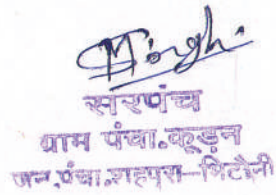 Singh
सरपंच
ग्राम पंचा.कूड़न
जन.पंचा.शहपुरा-भिटौनी